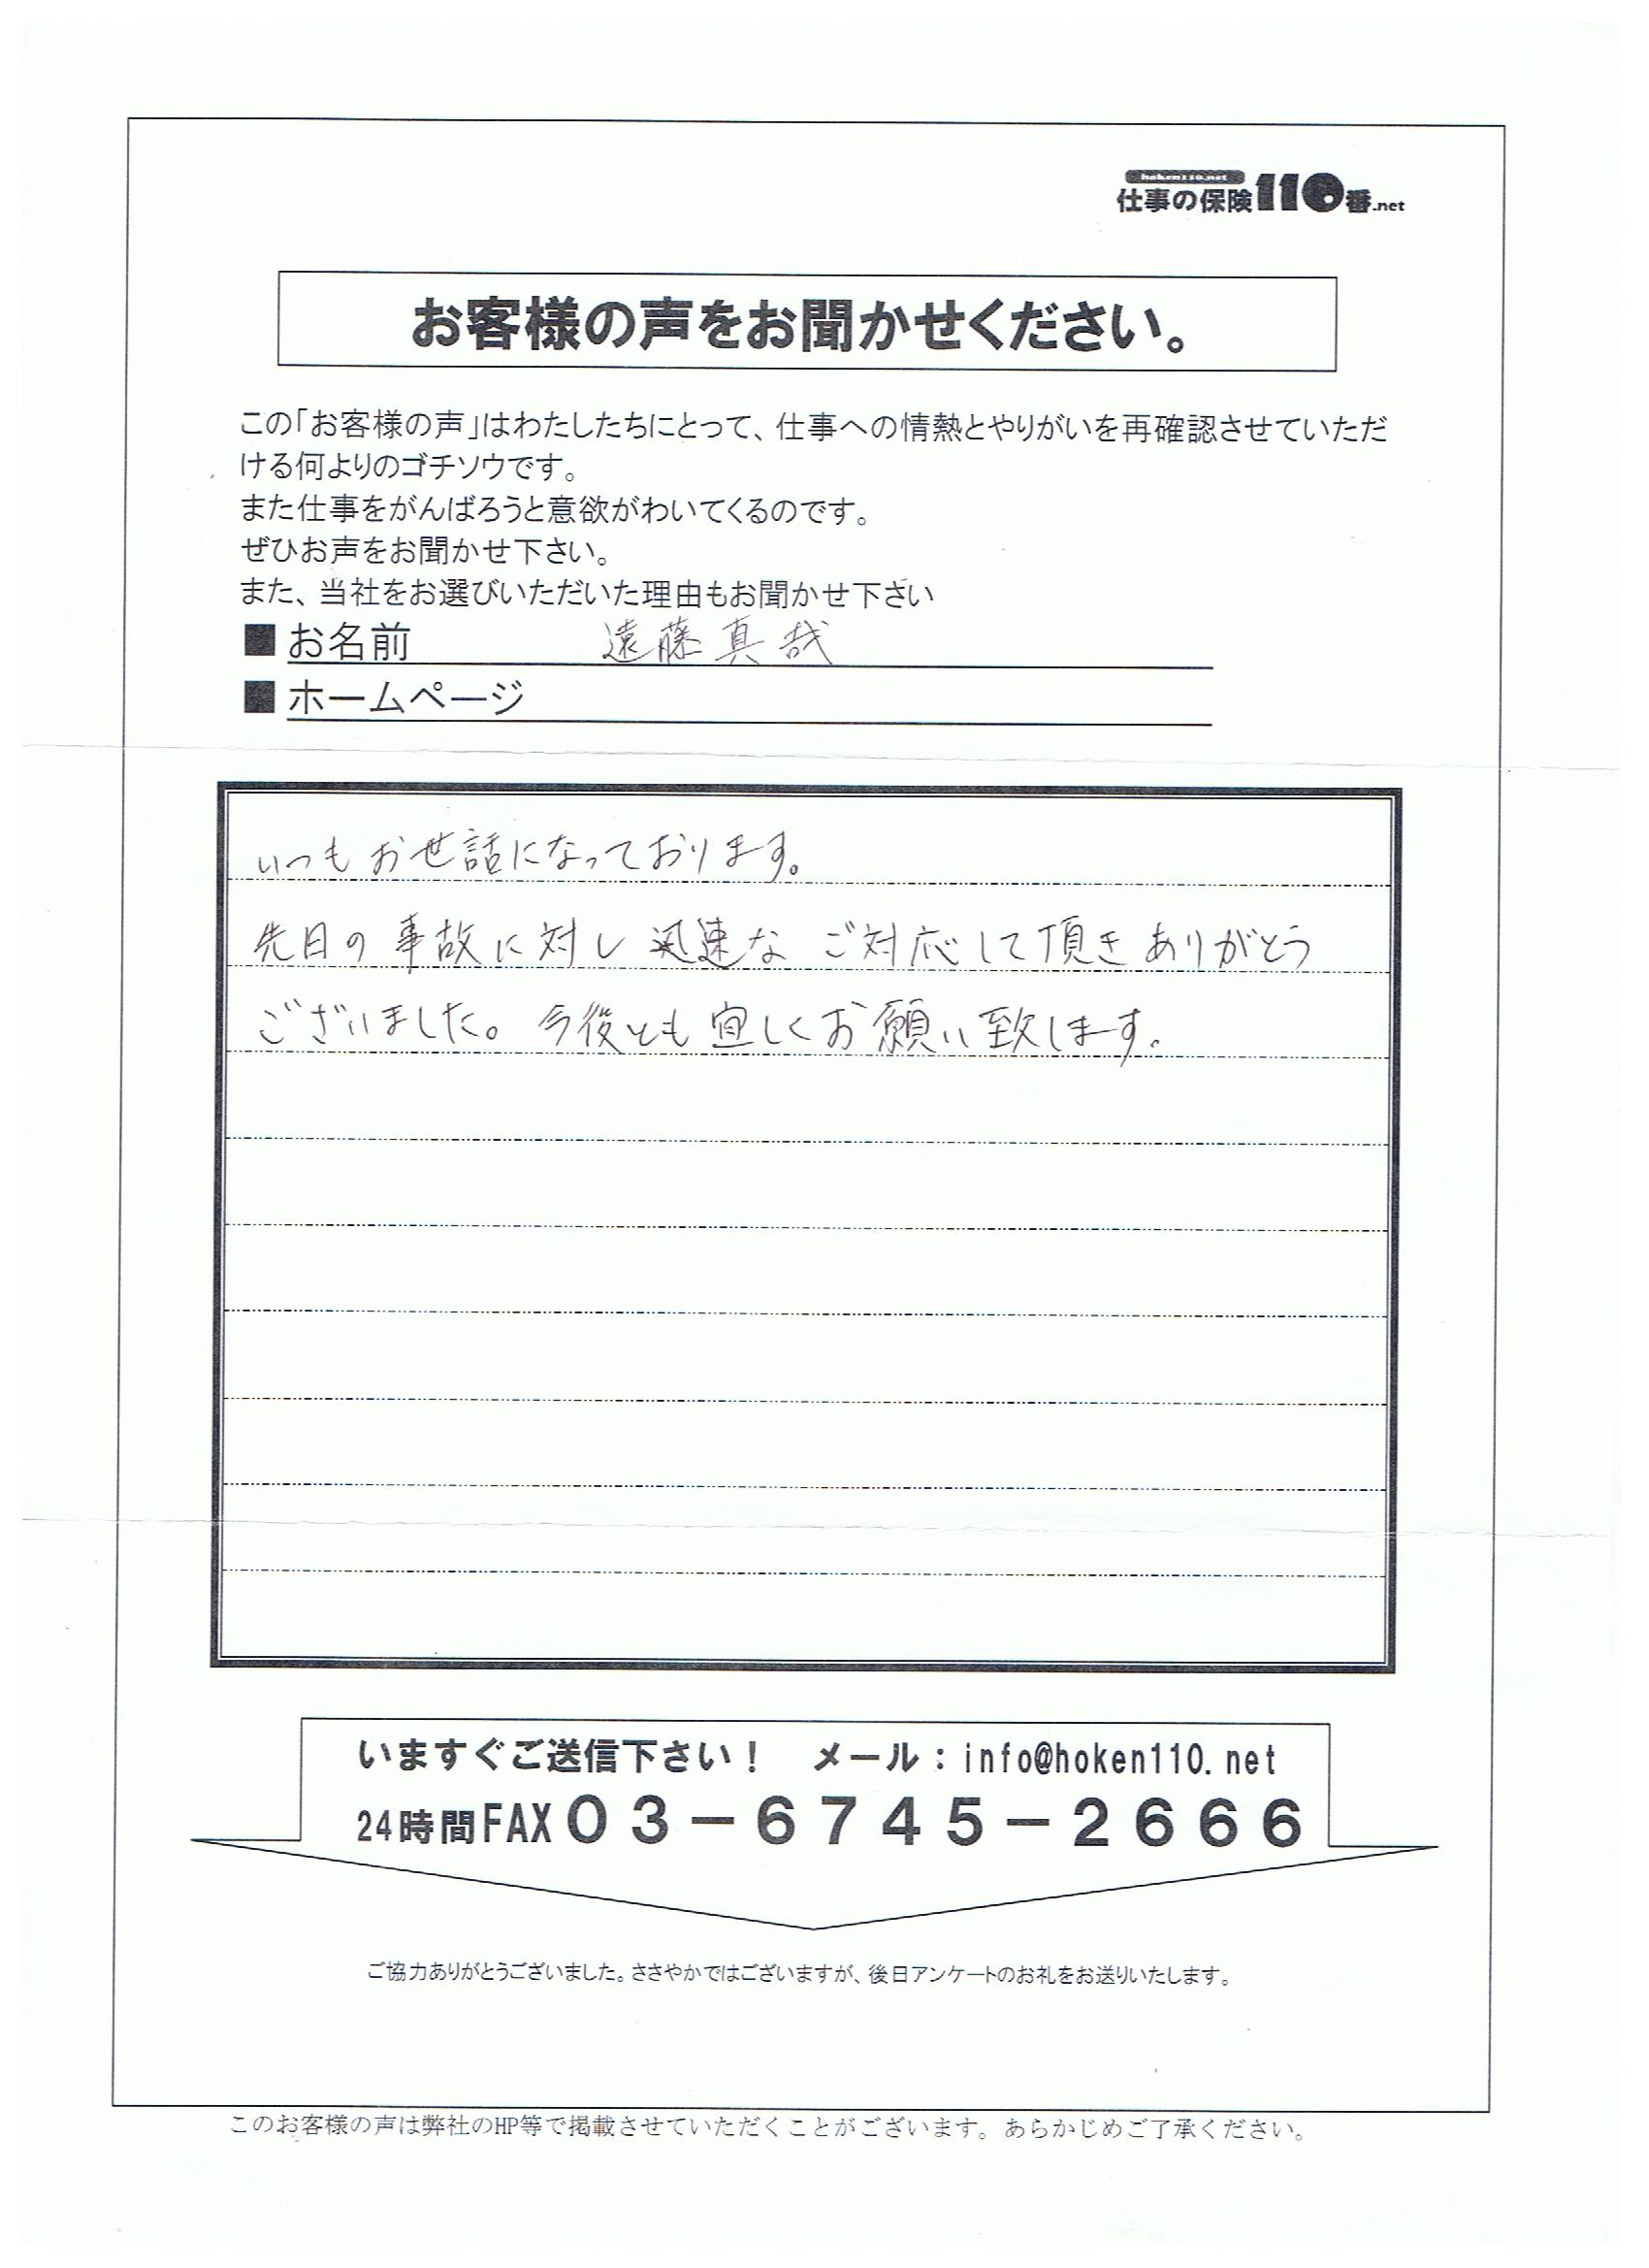 hoken110.net
仕事の保険110番.net
お客様の声をお聞かせください。
この「お客様の声」はわたしたちにとって、仕事への情熱とやりがいを再確認させていただ
ける何よりのゴチソウです。
また仕事をがんばろうと意欲がわいてくるのです。
ぜひお声をお聞かせ下さい。
また、当社をお選びいただいた理由もお聞かせ下さい
■お名前 遠藤真哉
■ホームページ
いつもお世話になっております。
先日の事故に対し迅速なご対応して頂きありがとう
ございました。今後とも宜しくお願い致します。
いますぐご送信下さい! メール:info@hoken110.net
24時間FAX03-6745-2666
ご協力ありがとうございました。ささやかではございますが、後日アンケートのお礼をお送りいたします。
このお客様の声は弊社のHP等で掲載させていただくことがございます。あらかじめご了承ください。